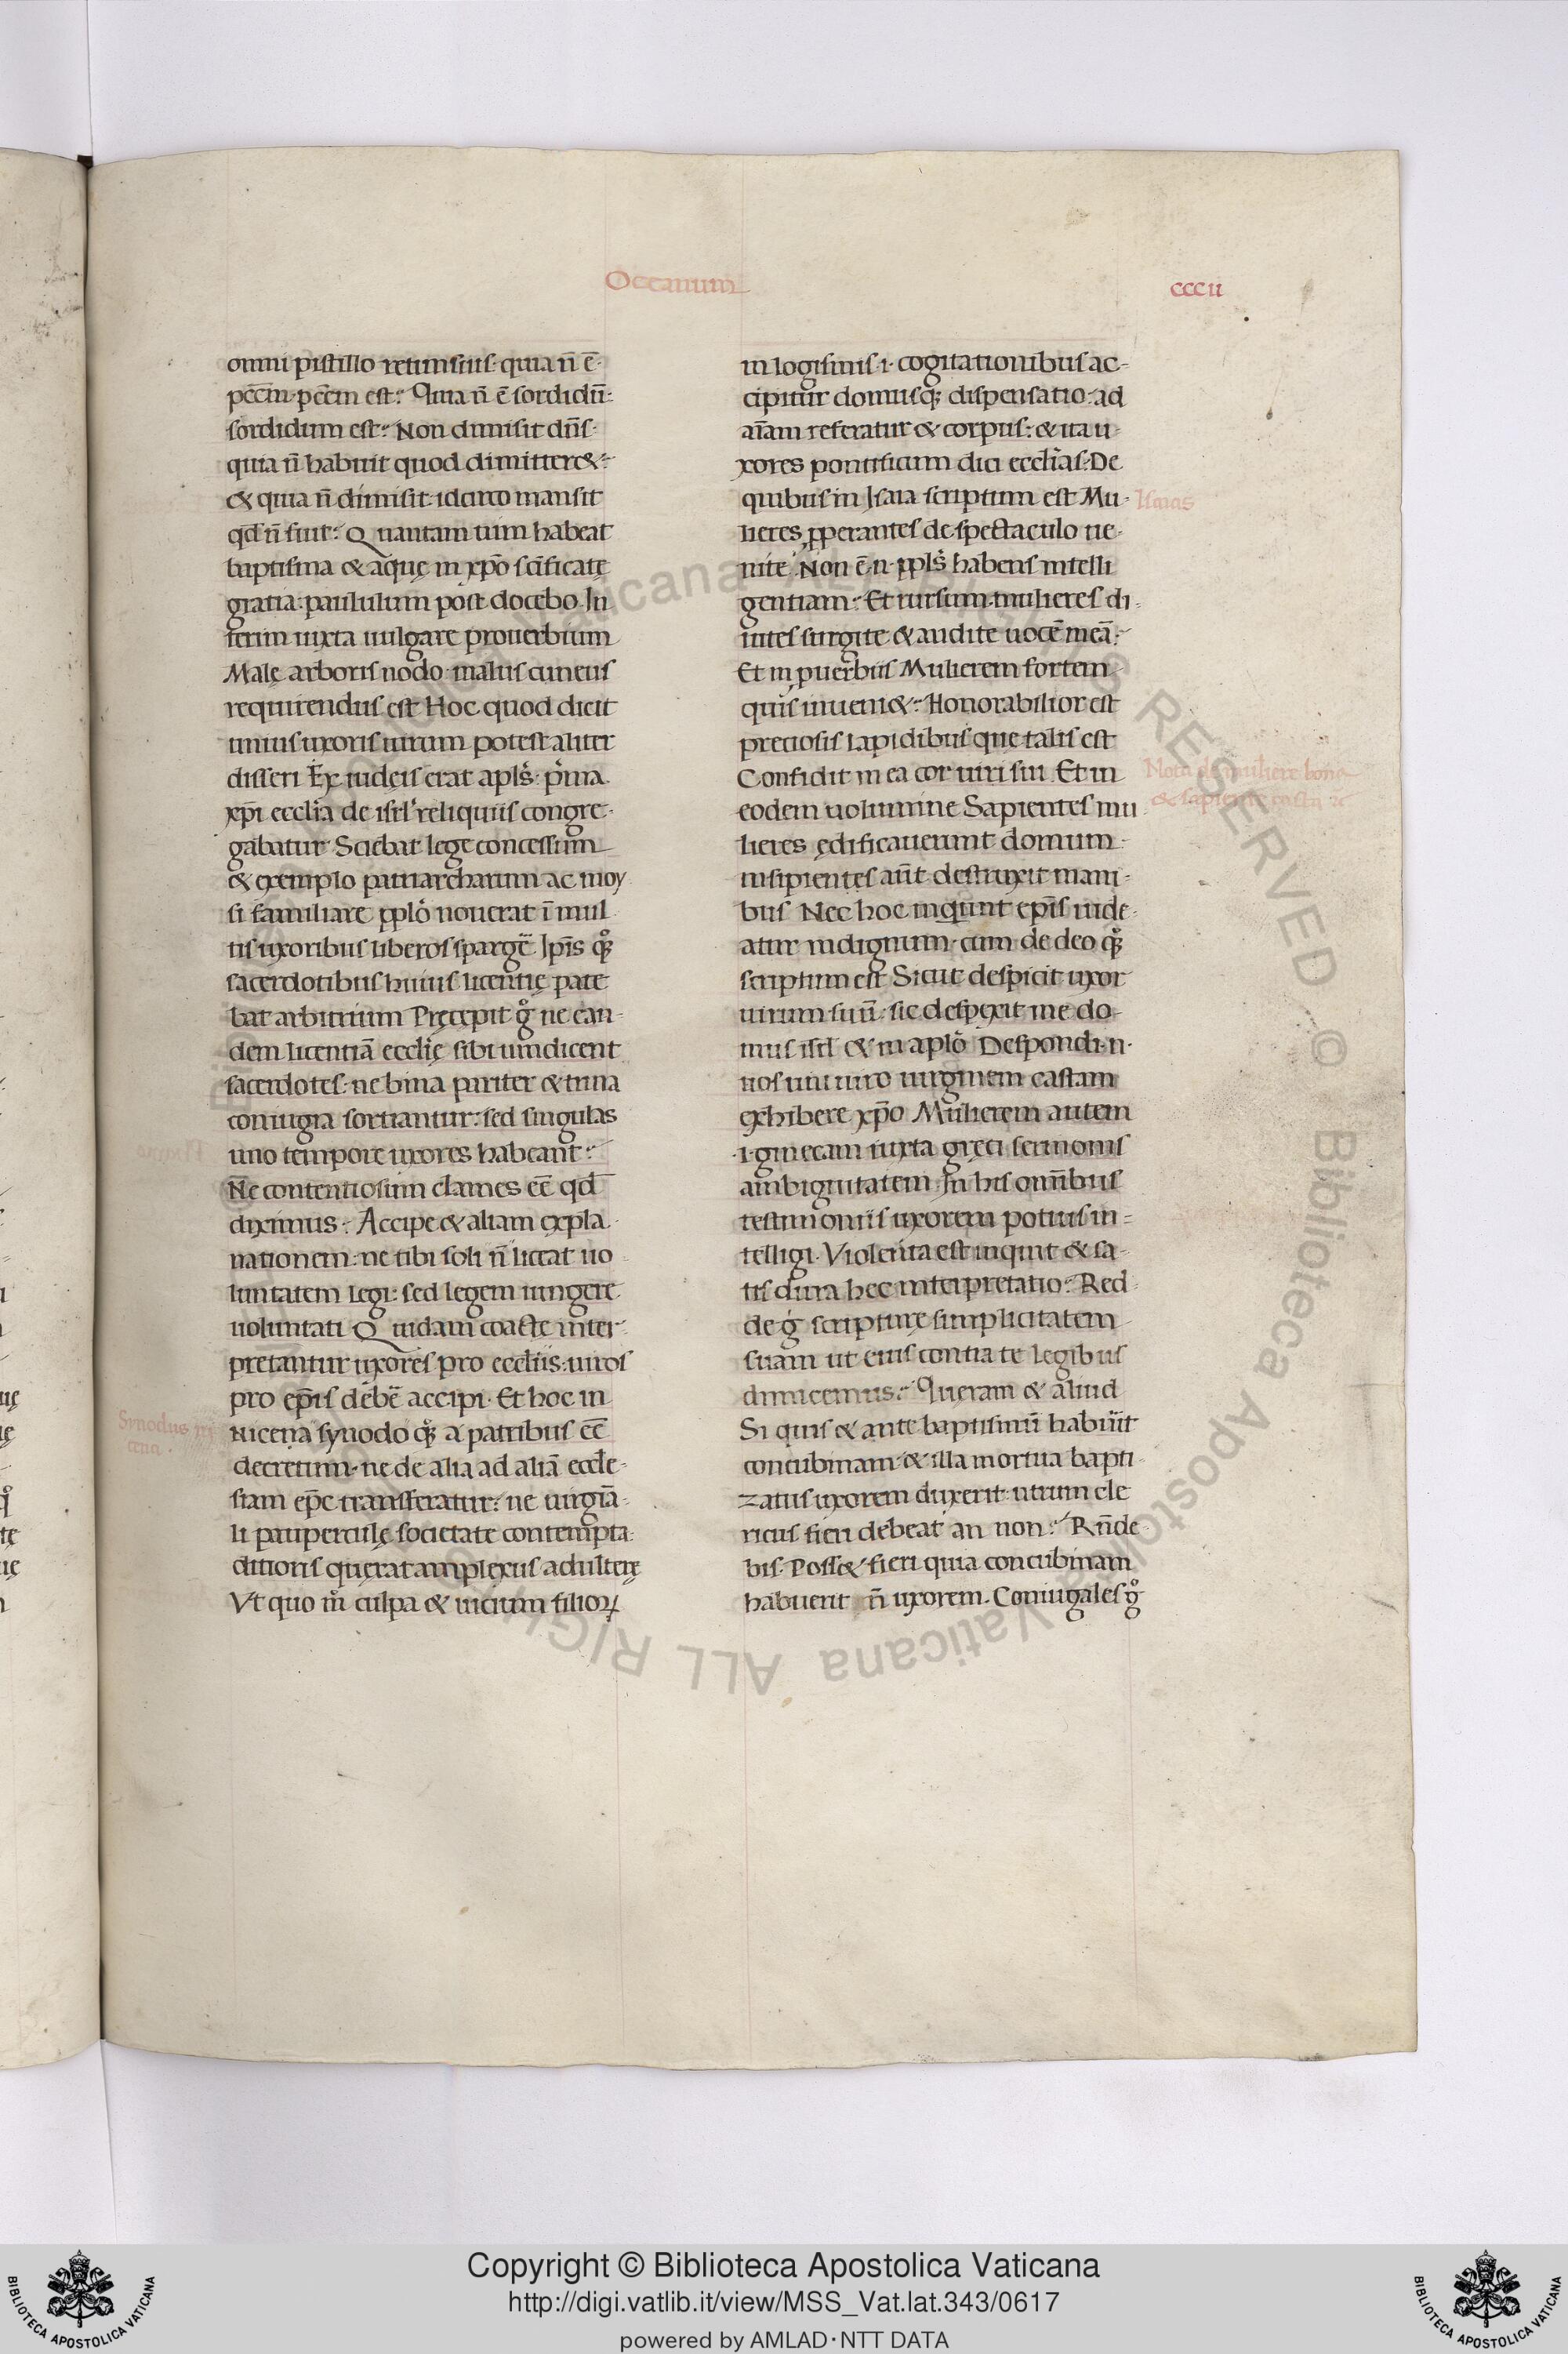 Occanum
cccii
omni pistillo retunsius· quia n̄ ē·
pēcm· pēcm est:· Quia n̄ ē sordidū:
sordidum est:· Non dimisit dn̄s·
quia n̄ habuit quod dimitter&:·
& quia n̄ dimisit· idcirco mansit
qd̄ n̄ fuit:· Quantam uim habeat
baptisma & aque̜ in xp̄o sc̄ificate̜
gratia· paululum post docebo· In
terim iuxta uulgare prouerbium
Male̜ arboris nodo· malus cuneus
requirendus est Hoc quod dicit
unius uxoris uirum potest aliter
disseri Ex iudeis erat apl̄s· p̄ma
xp̄i eccl̄ia de isrl̄ reliquiis congre·
gabatur Sciebat lege concessum
& exemplo patriarcharum ac moy
si familiare pplō nouerat ī mul
tis uxoribus liberos spargē Ip̄is qq̊
sacerdotibus huius licentie̜ pate
bat arbitrium Pre̜cepit g̊ ne ean-
dem licentiā eccl̄ie̜ sibi uindicent
sacerdotes· ne bina pariter & trina
coniugia sortiantur: sed singulas
uno tempore uxores habeant:·
Ne contentiosum clames eē̄ qd̄
diximus:· Accipe & aliam expla
nationem: ne tibi soli n̄ liceat uo
luntatem legi: sed legem iungere
uoluntati Quidam coacte inter·
pretantur uxores pro eccl̄iis: uiros
pro ep̄is debē accipi· Et hoc in
nicena synodo qq̊ a patribus eē̄
decretum· ne de alia ad aliā eccle-
siam ep̄c transferatur:· ne uirgīa-
li paupercule̜ societate contempta·
ditioris que̜rat amplexus adultere̜
Vt quo m̊ culpa & uicium filioꝝ
Synodus ni
cena·
in logismis· i· cogitationibus ac-
cipitur domusq; dispensatio: ad
aīam referatur & corpus: & ita u-
xores pontificum dici eccl̄ias· De
quibus in Isaia scriptum est Mu-
lieres pperantes de spectaculo ue-
nite Non ē· n· ppl̄s habens intelli
gentiam:· Et rursum· mulieres di-
uites surgite & audite uocē meā:·
Et in puerbiis Mulierem fortem
quis inueni&:· Honorabilior est
preciosis lapidibus que talis est
Confidit in ea cor uiri sui Et in
eodem uolumine Sapientes mu
lieres e̜dificauerunt domum·
insipientes aūt destruxit mani-
bus Nec hoc inquint ep̄is uide-
atur indignum· cum de deo qq̊
scriptum est Sicut despicit uxor
uirum suū· sic despexit me do-
mus isrl̄ & in aplō Despondi· n·
uos uni uiro uirginem castam
exhibere xp̄o Mulierem autem
·i· ginecam iuxta gre̜ci sermonis
ambiguitatem In his om̄ibus
testimoniis uxorem potius in-
telligi· Violenta est inquit & sa-
tis dura hec interpretatio:· Red-
de g̊ scripture̜ simplicitatem
suam ut eius contra te legibus
dimicemus:· Queram & aliud
Si quis & ante baptismū habuīt
concubinam· & illa mortua bapti·
zatus uxorem duxerit· utrum cle
ricus fieri debeat an non:· Rn̄de
bis· Poss& fieri quia concubinam
habuerit n̄ uxorem· Coniugales g̊
Isaias
Nota de muliere bona
& sapiente
Copyright © Biblioteca Apostolica Vaticana
http://digi.vatlib.it/view/MSS_Vat.lat.343/0617
powered by AMLAD·NTT DATA
BIBLIOTECA APOSTOLICA VATICANA
BIBLIOTECA APOSTOLICA VATICANA